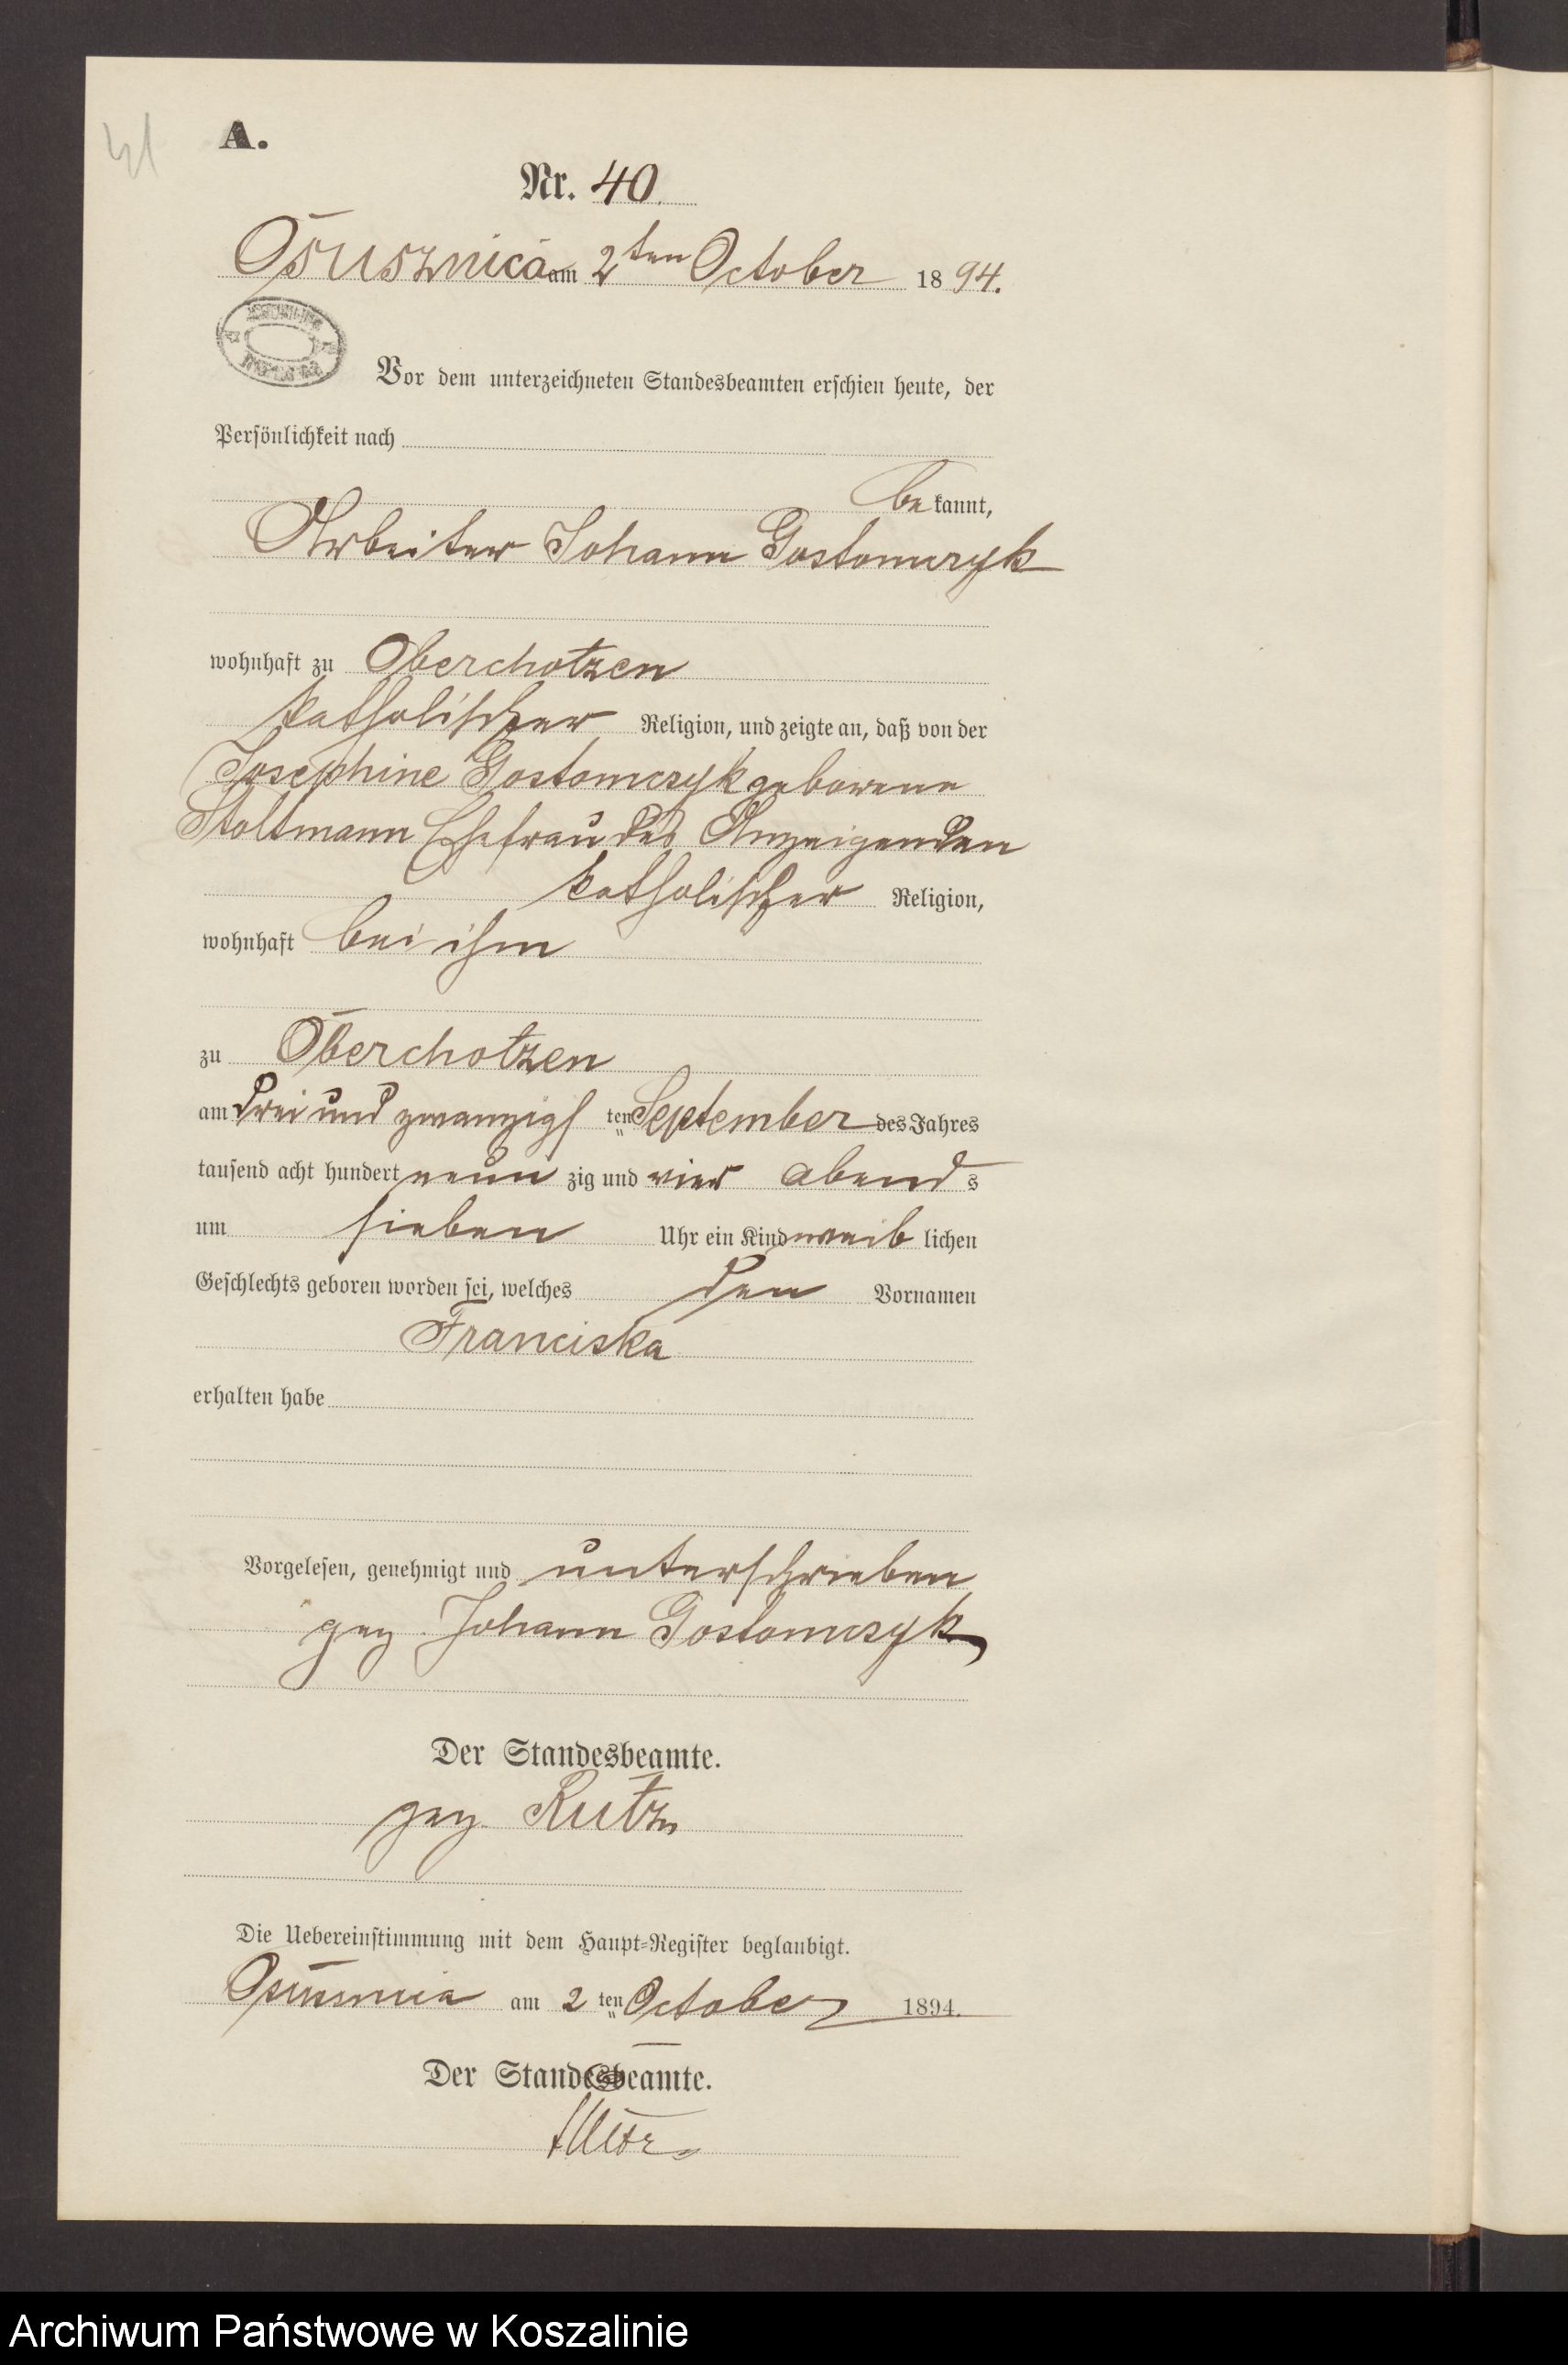 41
A.
Nr. 40.
Osusznica am 2ten October 1894.
Vor dem unterzeichneten Standesbeamten erschien heute, der
Persönlichkeit nach
bekannt,
Arbeiter Johann Gostomczyk
wohnhaft zu Oberchotzen
katholischer Religion, und zeigte an, daß von der
Josephine Gostomczyk geborene
Stoltmann Ehefrau des Anzeigenden
katholischer Religion,
wohnhaft bei ihm
zu Oberchotzen
am drei und zwanzigsten September des Jahres
tausend acht hundert neunzig und vier abends
um sieben Uhr ein Kind weiblichen
Geschlechts geboren worden sei, welches den Vornamen
Franciska
erhalten habe
Vorgelesen, genehmigt und unterschrieben
gez. Johann Gostomczyk
Der Standesbeamte.
gez. Kutz
Die Uebereinstimmung mit dem Haupt-Register beglaubigt.
Osusznica am 2ten October 1894.
Der Standesbeamte.
Archiwum Państwowe w Koszalinie